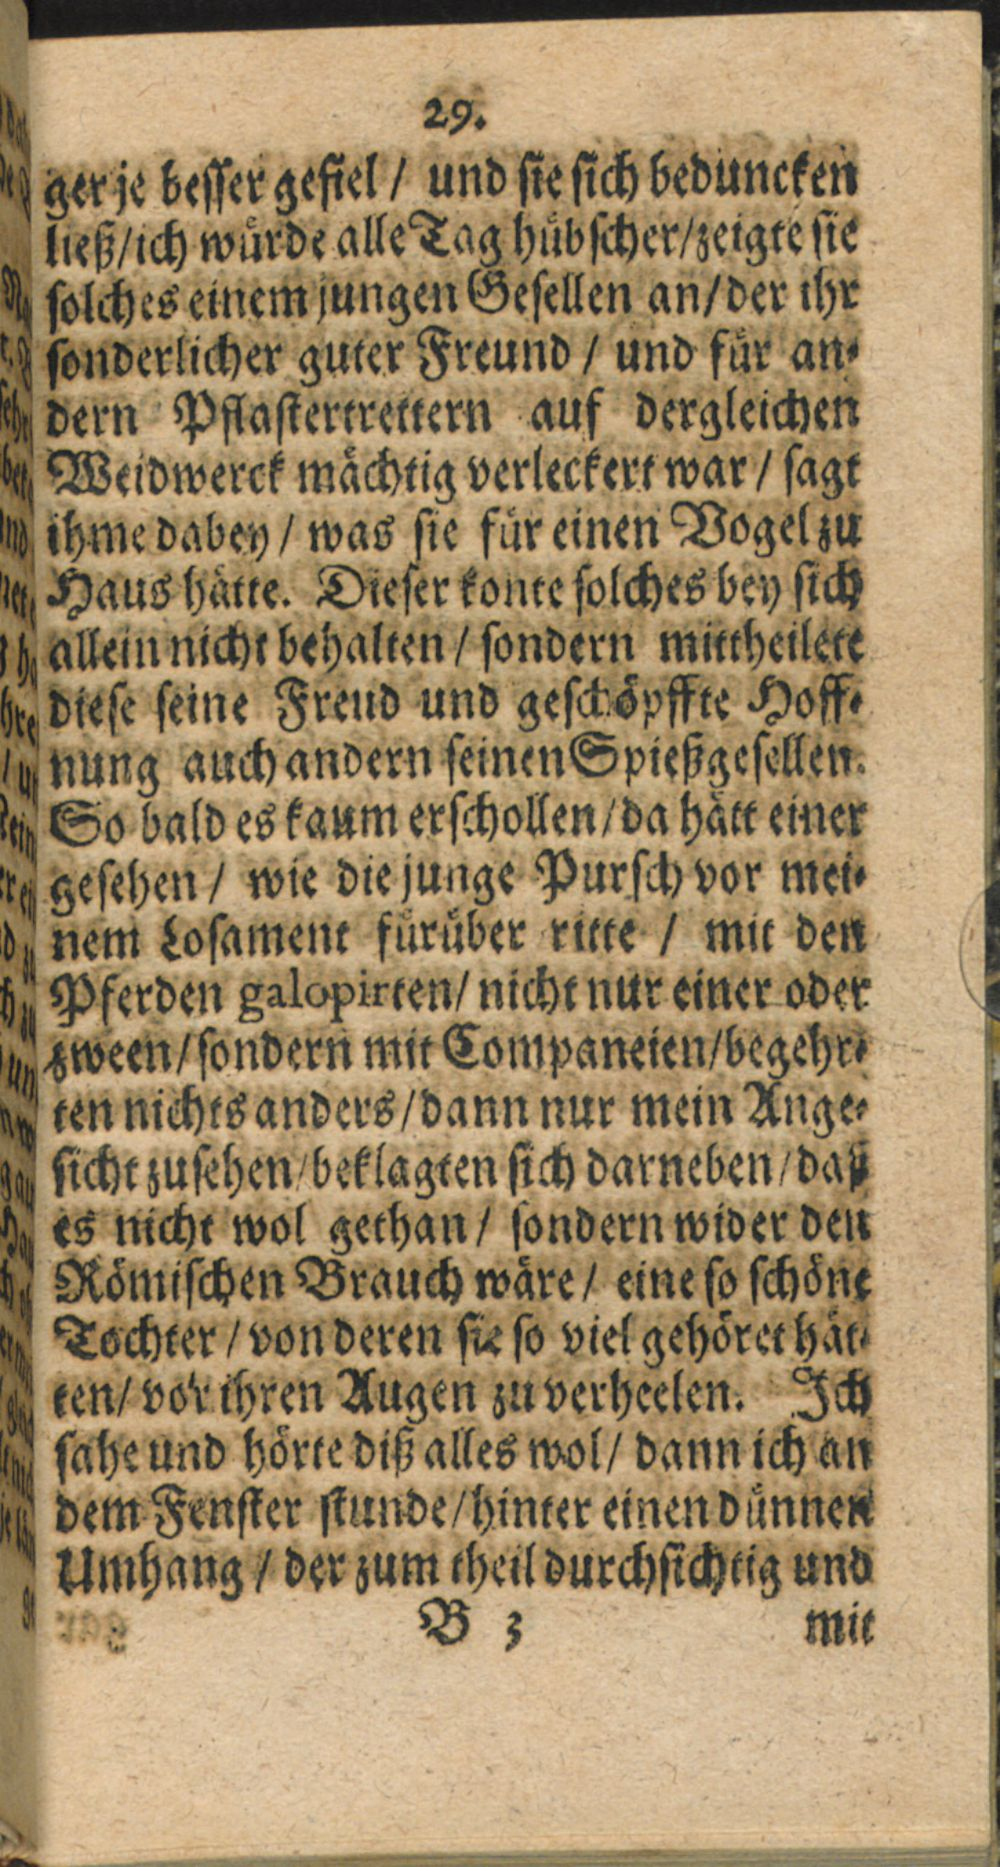 29.
ger je besser gefiel / und sie sich beduncken
ließ/ ich würde alle Tag hübscher/ zeigte sie
solches einem jungen Gesellen an/ der ihr
sonderlicher guter Freund / und für an-
dern Pflastertrettern auf dergleichen
Weidwerck mächtig verleckert war / sagt
ihme dabey / was sie für einen Vogel zu
Haus hätte. Dieser konte solches bey sich
allein nicht behalten / sondern mittheilete
diese seine Freud und geschöpffte Hoff-
nung auch andern seinen Spießgesellen.
So bald es kaum erschollen/ da hätt einer
gesehen / wie die junge Pursch vor mei-
nem Losament fürüber ritte / mit den
Pferden galopirten/ nicht nur einer oder
zween/ sondern mit Companeien/ begehr-
ten nichts anders/ dann nur mein Ange-
sicht zu sehen/ beklagten sich darneben/ daß
es nicht wol gethan / sondern wider den
Römischen Brauch wäre / eine so schöne
Tochter / von deren sie so viel gehöret hät-
ten/ vor ihren Augen zu verheelen. Ich
sahe und hörte diß alles wol/ dann ich an
dem Fenster stunde/ hinter einen dünnen
Umhang / der zum theil durchsichtig und
B 3 mit